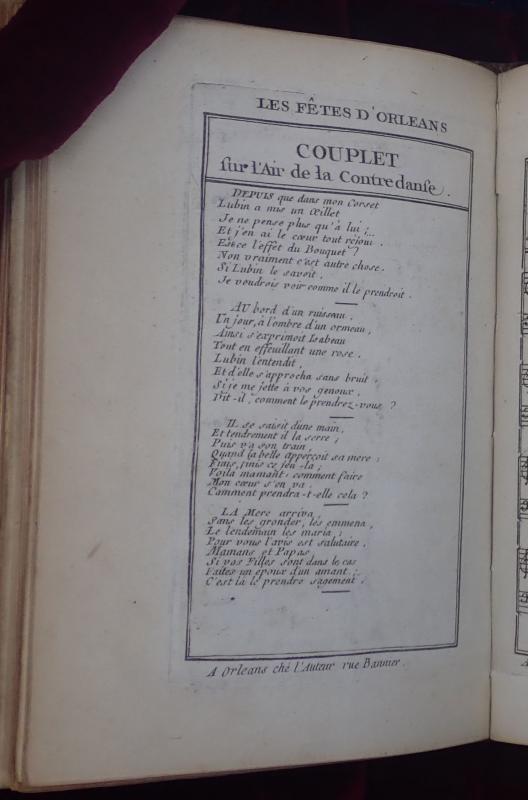 LES FÊTES D'ORLEANS
COUPLET
sur l'Air de la Contredanse.
DEPUIS que dans mon Corset
Lubin a mis un œillet
Je ne pense plus qu'à lui ;
Et j'en ai le cœur tout réjoui.
Est-ce l'effet du Bouquet ?
Non vraiment c'est autre chose.
Si Lubin le savoit.
Je voudrois voir comme il le prendroit.
AU bord d'un ruisseau.
Un jour, à l'ombre d'un ormeau,
Ainsi s'exprimoit Isabeau
Tout en effeuillant une rose.
Lubin l'entendit,
Et d'elle s'approcha sans bruit.
Si je me jette à vos genoux,
Dit-il, comment le prendrez-vous ?
IL se saisit dune main,
Et tendrement il la serre ;
Puis va son train
Quand la belle apperçoit sa mere :
Finis, finis ce jeu-la ;
Voila maman : comment faire
Mon cœur s'en va
Camment prendra-t-elle cela ?
LA Mere arriva,
Sans les gronder, les emmena,
Le lendemain les maria ;
Pour vous l'avis est salutaire,
Mamans et Papas,
Si vos Filles sont dans le cas
Faites un epoux d'un amant ;
C'est là le prendre sagement.
A Orleans ché l'Auteur rue Bannier.